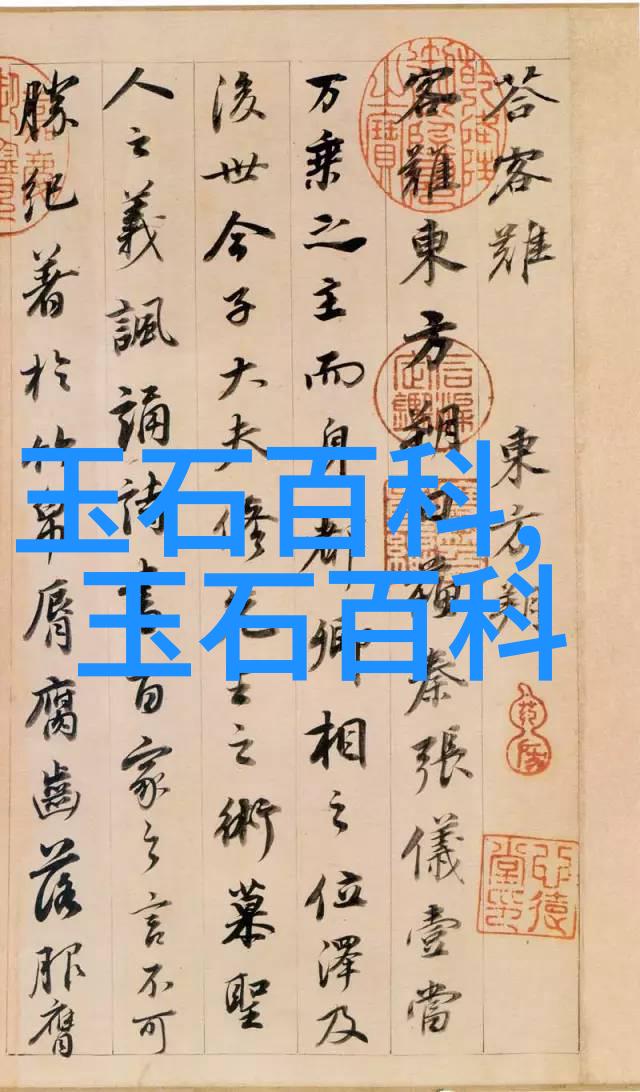 荅客難 東方朔
客難東方朔曰蘇秦張儀壹當
万乗之主而身都卿相之位澤及
後世今子大夫修先王之術慕聖
人之義諷誦詩書百家之言不可
勝紀著於竹帛脣腐齒落服膺
玉石百科,
玉石百科